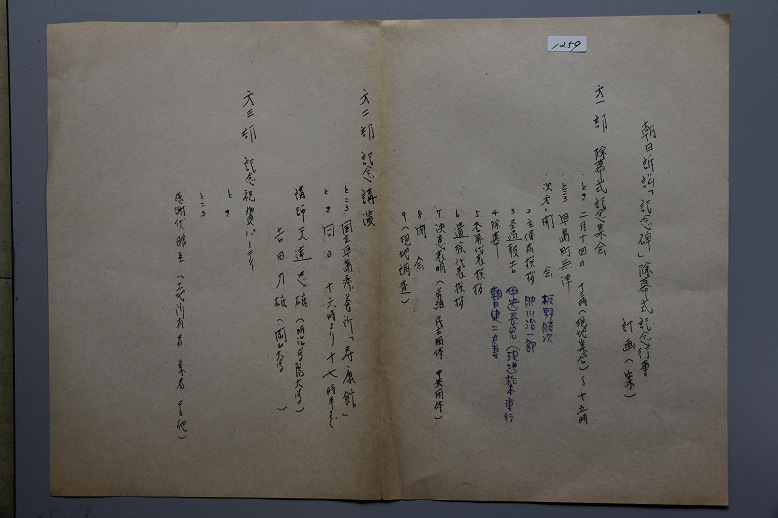 1259
朝日訴訟「記念碑」除幕式記念行事
計画(案)
才一部 除幕式記念集会
・とき 二月十四日 十三時(現地集合)~十五時
・ところ 早島町無津
・次才 1 開会 板野勝次
2 主催者挨拶 肥川治一郎
3 経過報告
4 除幕 朝日健二夫妻
5 来賓代表挨拶
6 遺族代表挨拶
7 決意表明(労組 民主団体 中央団体)
8 閉会
9(現地調査)
才二部 記念講演
ところ 国立早島療養所「寿康館」
とき 同日 十六時より十七時半まで
講師 天達忠雄(明治学院大学)
吉田力雄(岡山大学)
才三部 記念祝賀パーティ
とき
ところ
感謝代贈呈(土地所有者 業者 その他)